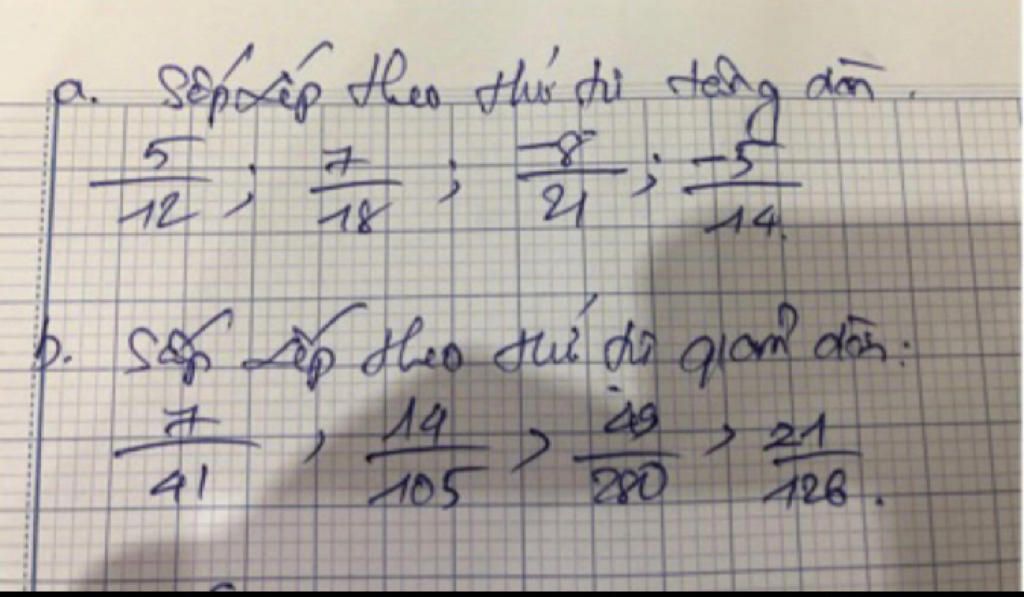 a. Sắp xếp theo thứ tự tăng dần.
5/12 ; 7/18 ; -8/21 ; -5/14.
b. Sắp xếp theo thứ tự giảm dần:
7/41 , 14/105 , 49/280 , 21/126.